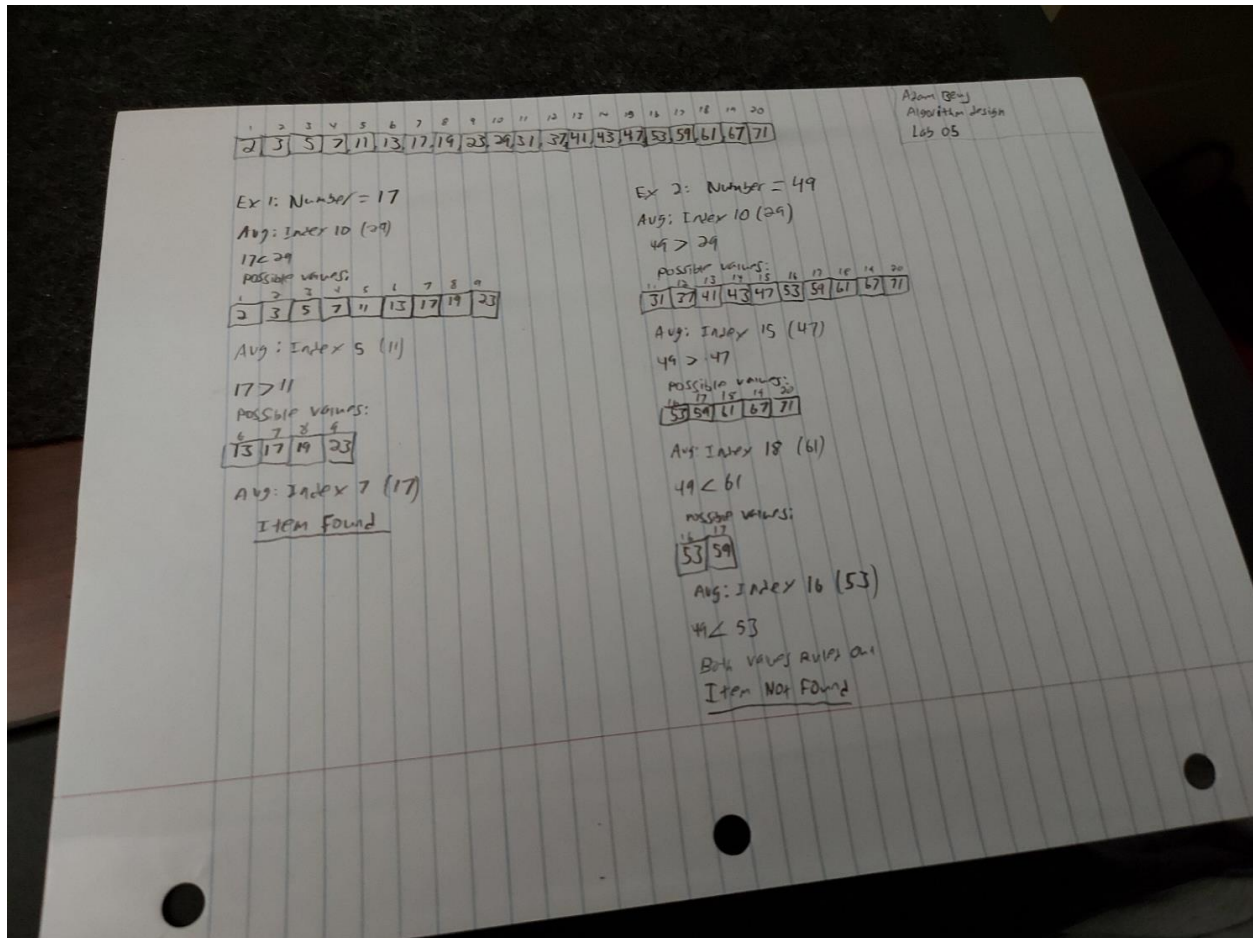 Algorithm design
Lab 05
1 2 3 4 5 6 7 8 9 10 11 12 13 14 15 16 17 18 19 20
2 3 5 7 11 13 17 19 23 29 31 37 41 43 47 53 59 61 67 71
Ex 1: Number = 17
Avg: Index 10 (29)
17<29
possible values:
1 2 3 4 5 6 7 8 9
2 3 5 7 11 13 17 19 23
Avg: Index 5 (11)
17>11
possible values:
6 7 8 9
13 17 19 23
Avg: Index 7 (17)
Item Found
Ex 2: Number = 49
Avg: Index 10 (29)
49 > 29
possible values:
11 12 13 14 15 16 17 18 19 20
31 37 41 43 47 53 59 61 67 71
Avg: Index 15 (47)
49 > 47
possible values:
16 17 18 19 20
53 59 61 67 71
Avg: Index 18 (61)
49 < 61
possible values:
16 17
53 59
Avg: Index 16 (53)
49 < 53
Both values Ruled Out
Item Not Found